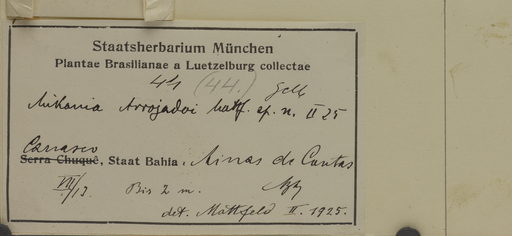 Staatsherbarium München
Plantae Brasilianae a Luetzelburg collectae
44 (44.) gelb
Mikania Arrojadoi Mattf. sp. n. II 25
Carrasco
Serra Chuquê, Staat Bahia. Minas de Contas
VII/13. Bis 2 m.
det. Mattfeld II. 1925.